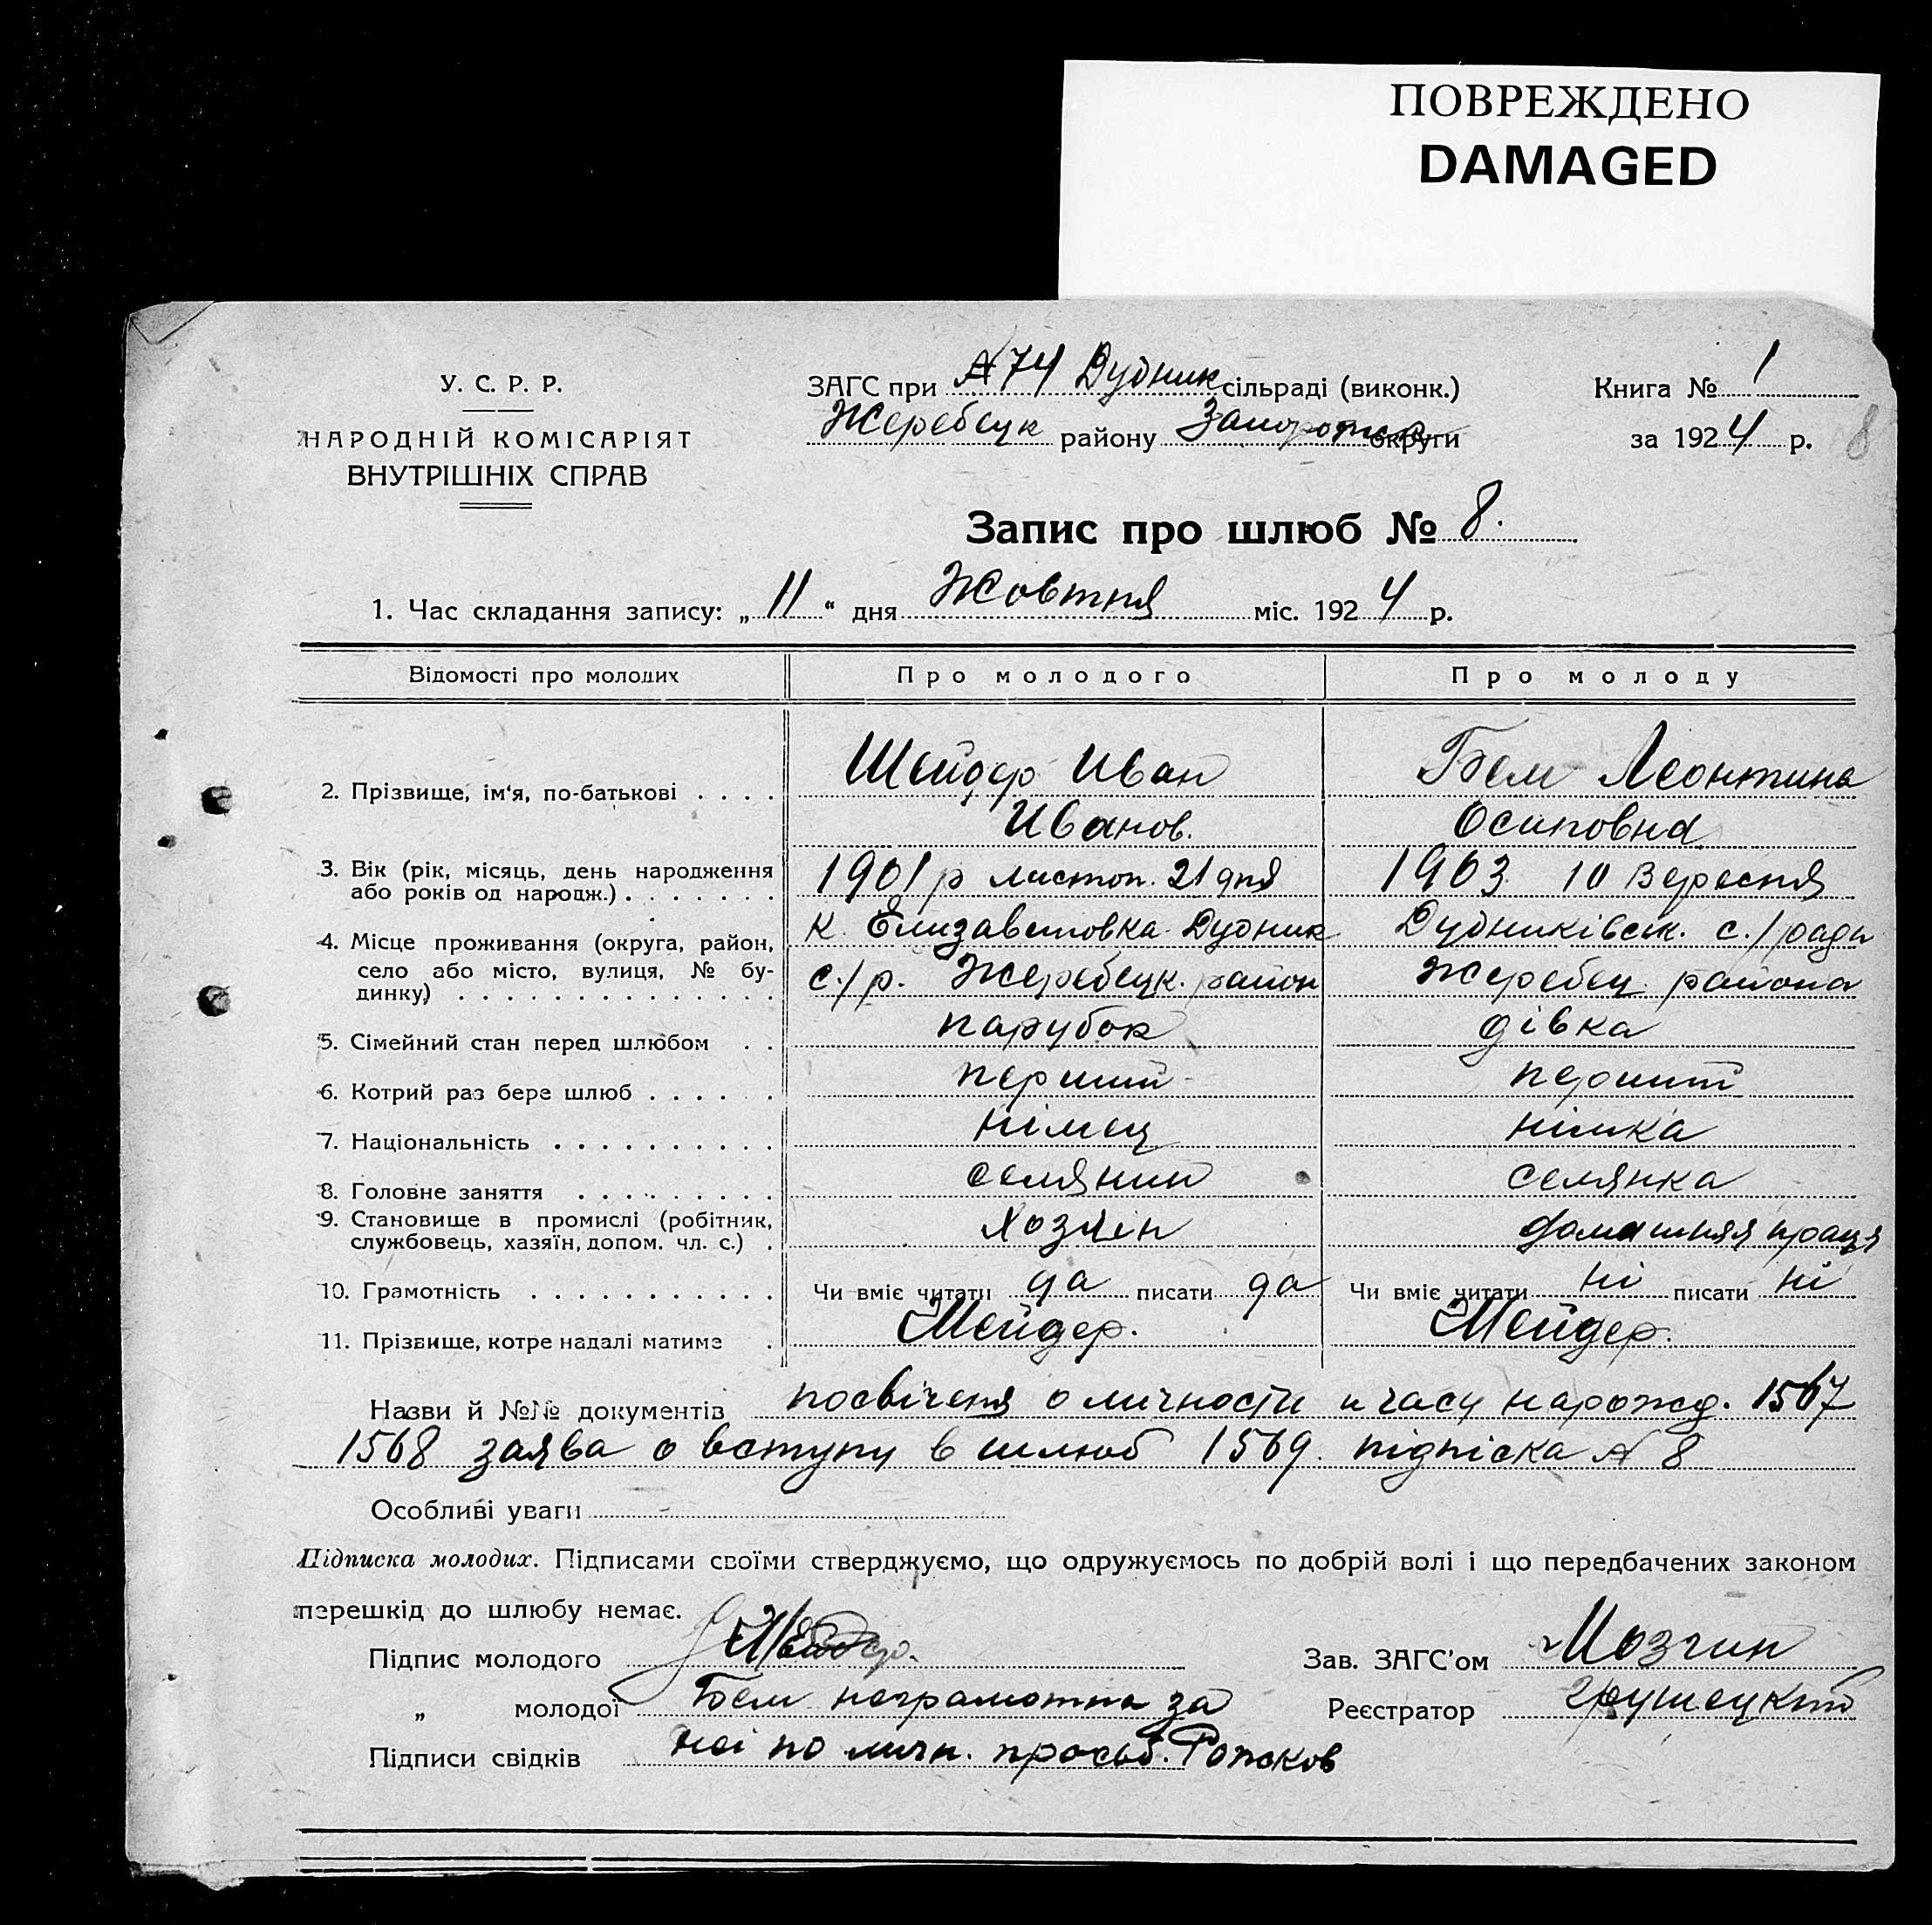 ПОВРЕЖДЕНО
DAMAGED
У. С. Р. Р.
НАРОДНІЙ КОМІСАРІЯТ
ВНУТРІШНІХ СПРАВ
ЗАГС при №74 Дудник сільраді (виконк.)
Жеребецк району округи
Книга № 1
за 1924 р. 8
Запис про шлюб № 8.
1. Час складання запису: „ 11 “ дня Жовтня міс. 1924 р.
Відомості про молодих Про молодого Про молоду
2. Прізвище, ім'я, по-батькові . . . . Шейдер Иван Бем Леонтина
Иванов. Осиповна
3. Вік (рік, місяць, день народження 1901 р листоп. 21 дня 1903 10 Вересня
або років од народж.) . . . . . . .
4. Місце проживання (округа, район, к. Елизаветовка Дудник Дудниківськ. с./ради
село або місто, вулиця, № бу- с./р. Жеребецк. район Жеребец. района
динку) . . . . . . . . . . . . . .
5. Сімейний стан перед шлюбом . . парубок дівка
6. Котрий раз бере шлюб . . . . . . перший перший
7. Національність . . . . . . . . . . німец німка
8. Головне заняття . . . . . . . . . селянин селянка
9. Становище в промислі (робітник, хозяін домашняя праця
службовець, хазяїн, допом. чл. с.) .
10. Грамотність . . . . . . . . . . . Чи вміє читати да писати да Чи вміє читати ні писати ні
11. Прізвище, котре надалі матиме . Шейдер. Шейдер.
Назви й №№ документів посвіченя о личности и часу нарожд. 1567
1568 заява о вступу в шлюб 1569. підпіска № 8
Особливі уваги
Підписка молодих. Підписами своїми стверджуємо, що одружуємось по добрій волі і що передбачених законом
перешкід до шлюбу немає.
Підпис молодого Шейдер. Зав. ЗАГС'ом Мозгин
„ молодої Бем неграмотна за Реєстратор Грушецкий
Підписи свідків неі по личн. просьб. Рожков